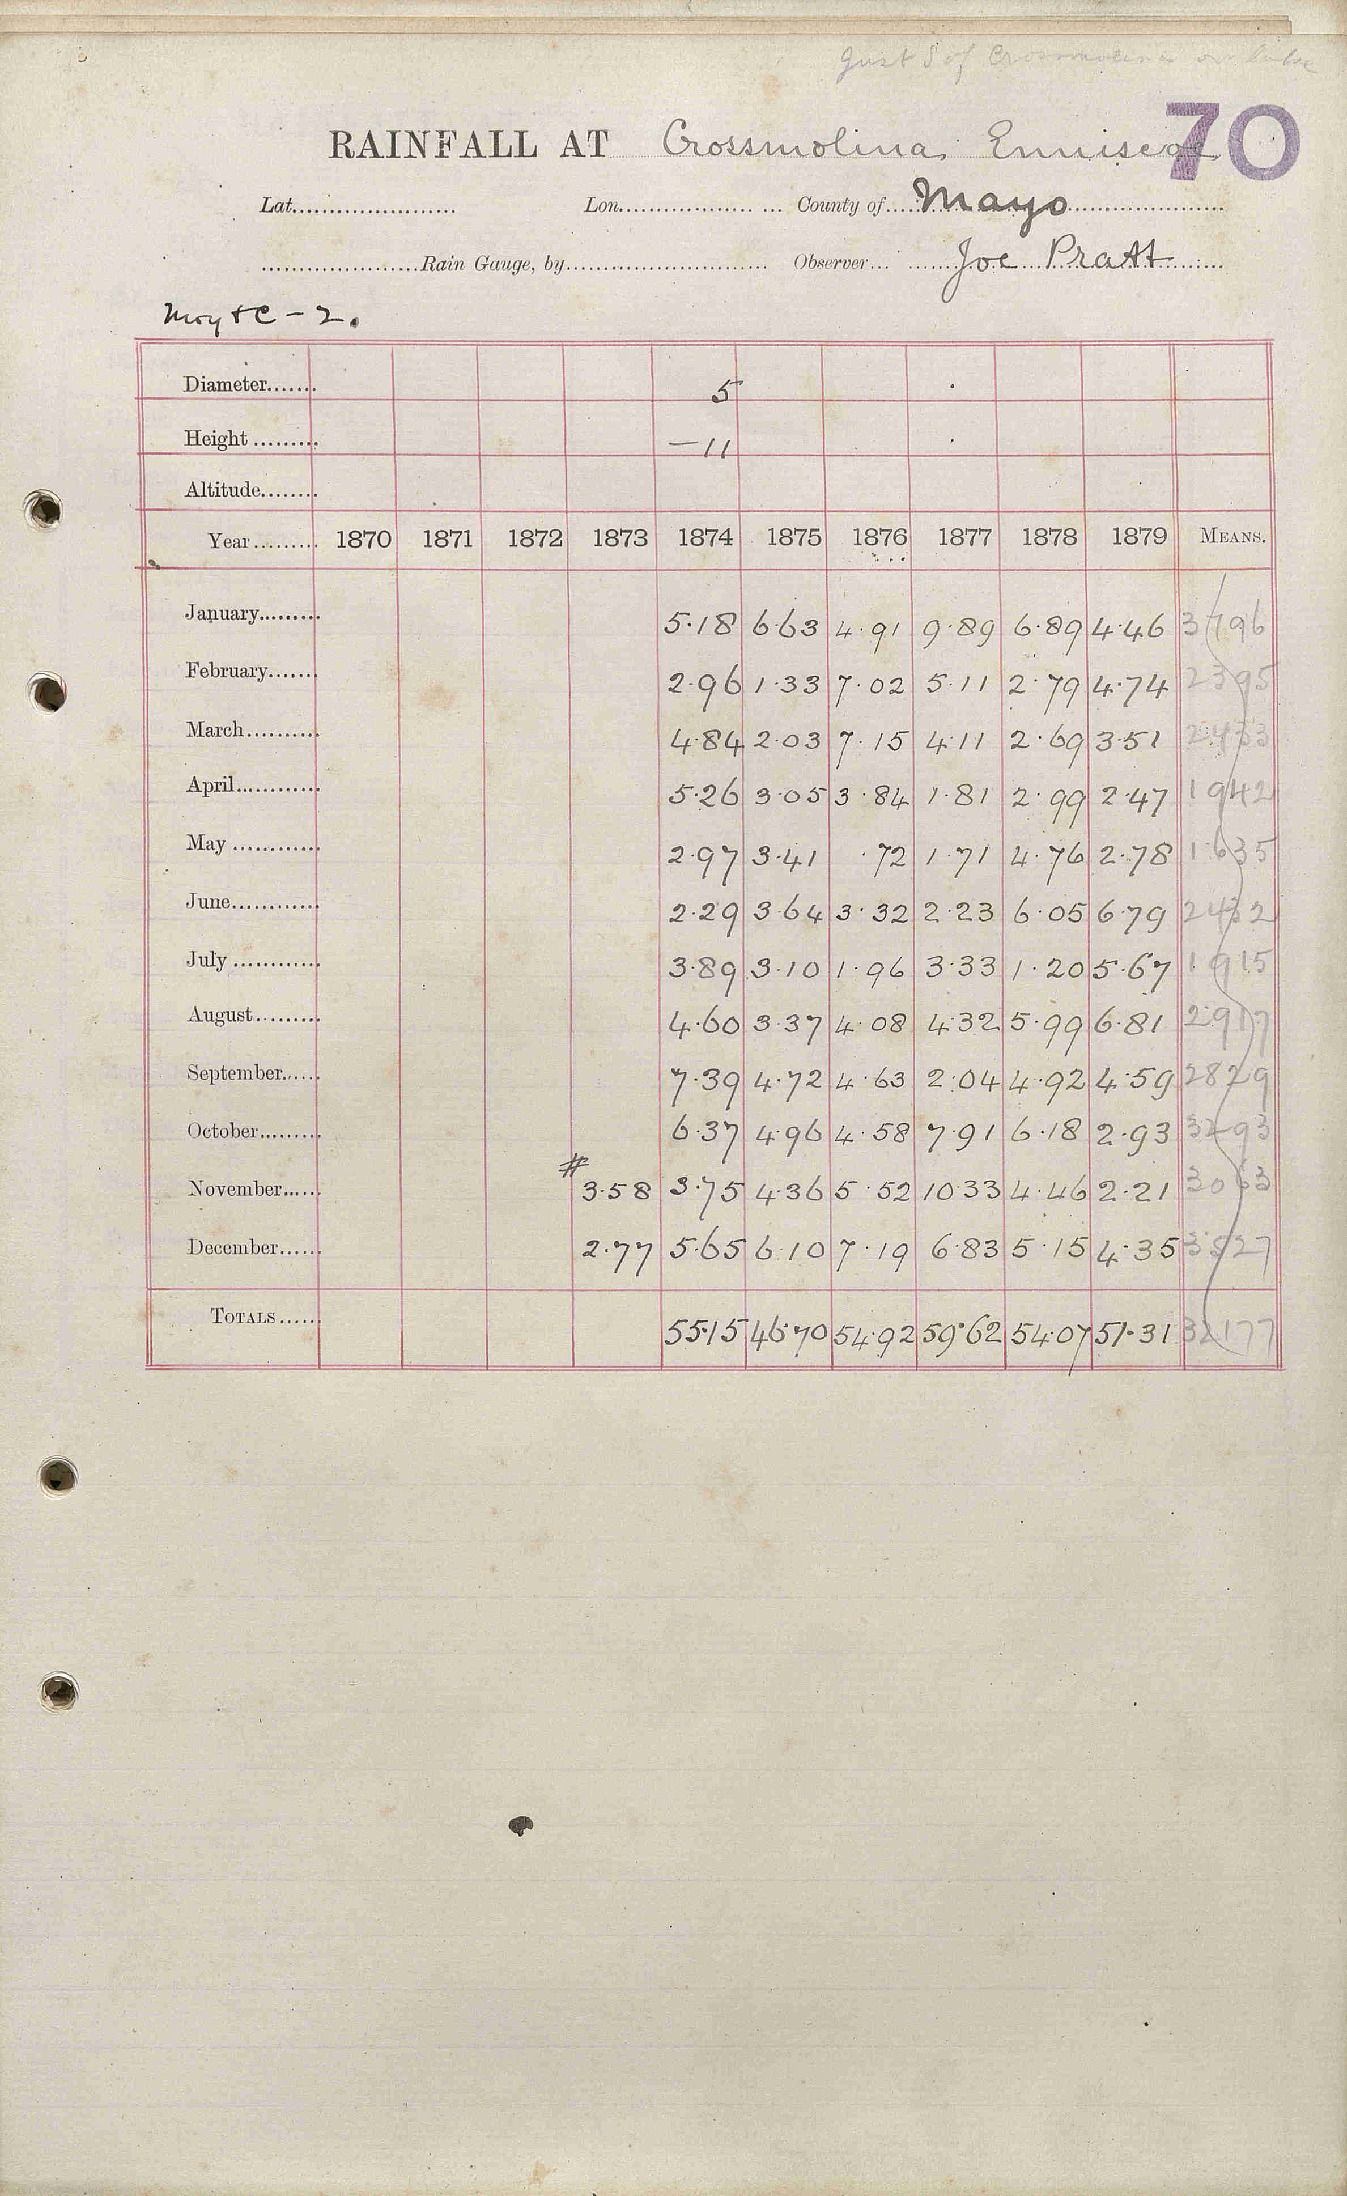 Just S of Crossmolina on lake
70
RAINFALL AT Crossmolina, Enniscoe
Lat...................... Lon.................. ... County of.....Mayo.....................
.....................Rain Gauge, by........................... Observer... .......Joe Pratt.......
Moy & C - 2.
Diameter....... 5
Height ......... —11
Altitude........
Year......... 1870 1871 1872 1873 1874 1875 1876 1877 1878 1879 MEANS.
January......... 5.18 6.63 4.91 9.89 6.89 4.46 3796
February....... 2.96 1.33 7.02 5.11 2.79 4.74 2395
March.......... 4.84 2.03 7.15 4.11 2.69 3.51 2433
April............ 5.26 3.05 3.84 1.81 2.99 2.47 1942
May ............ 2.97 3.41 .72 1.71 4.76 2.78 1635
June............ 2.29 3.64 3.32 2.23 6.05 6.79 2432
July ............ 3.89 3.10 1.96 3.33 1.20 5.67 1915
August......... 4.60 3.37 4.08 4.32 5.99 6.81 2917
September...... 7.39 4.72 4.63 2.04 4.92 4.59 2829
October......... 6.37 4.96 4.58 7.91 6.18 2.93 3293
November...... # 3.58 3.75 4.36 5.52 10.33 4.46 2.21 3063
December...... 2.77 5.65 6.10 7.19 6.83 5.15 4.35 3527
TOTALS...... 55.15 46.70 54.92 59.62 54.07 51.31 32177